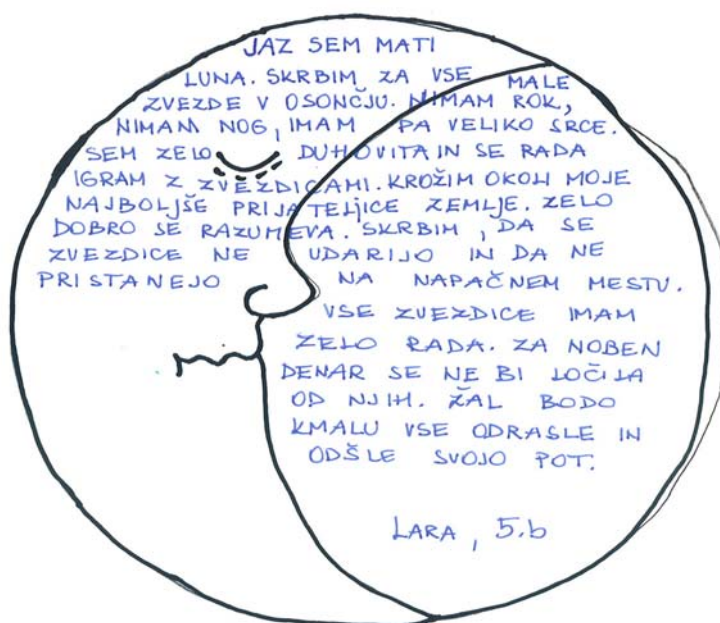 JAZ SEM MATI
LUNA. SKRBIM ZA VSE MALE
ZVEZDE V OSONČJU. NIMAM ROK,
NIMAM NOG, IMAM PA VELIKO SRCE.
SEM ZELO DUHOVITA IN SE RADA
IGRAM Z ZVEZDICAMI. KROŽIM OKOLI MOJE
NAJBOLJŠE PRIJATELJICE ZEMLJE. ZELO
DOBRO SE RAZUMEVA. SKRBIM, DA SE
ZVEZDICE NE UDARIJO IN DA NE
PRISTANEJO NA NAPAČNEM MESTU.
VSE ZVEZDICE IMAM
ZELO RADA. ZA NOBEN
DENAR SE NE BI LOČILA
OD NJIH. ŽAL BODO
KMALU VSE ODRASLE IN
ODŠLE SVOJO POT.
LARA, 5.b